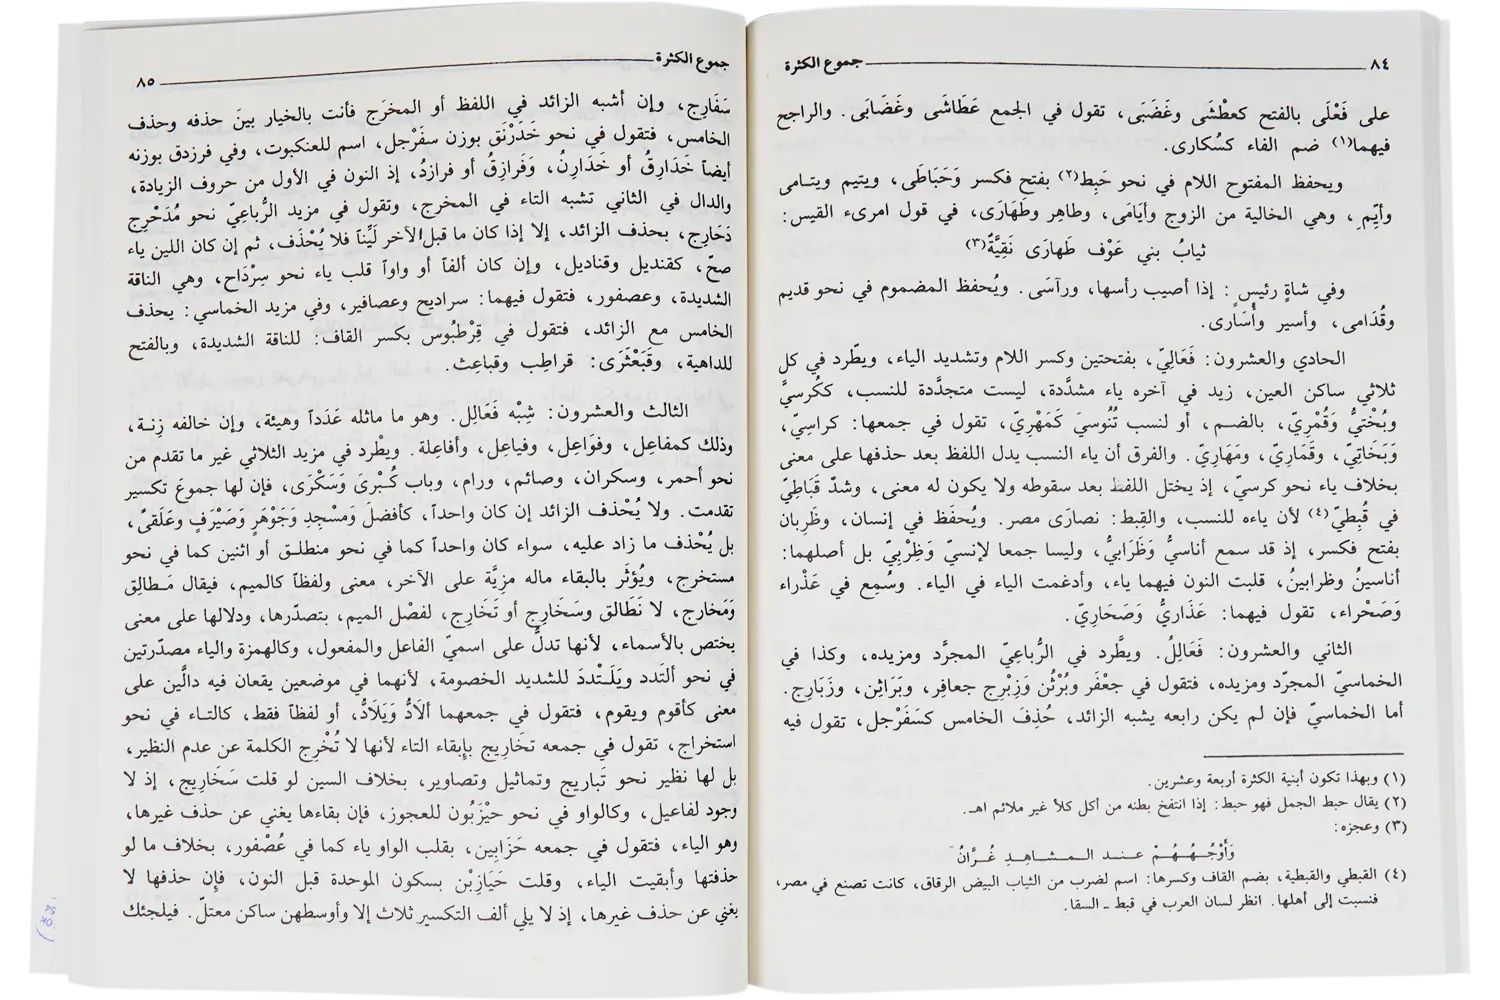 ٨٤ جموع الكثرة
على فَعْلَى بالفتح كعطْشَى وغَضَبَى، تقول في الجمع عَطَاشَى وغَضَابَى. والراجح
فيهما(١) ضم الفاء كسُكارى.
ويحفظ المفتوح اللام في نحو حَبِط(٢) بفتح فكسر وَحَبَاطَى، ويتيم ويتـامى
وأيِّمٍ، وهي الخالية من الزوج وأيَامَى، وطاهِر وطَهَارَى، في قول امرىء القيس:
ثيابُ بني عَوْف طَهارَى نَقِيَّةٌ(٣)
وفي شاةٍ رئيسٍ: إذا أصيب رأسها، ورآسَى. ويُحفظ المضموم في نحو قديم
وقُدَامى، وأسير وأُسَارى.
الحادي والعشرون: فَعَاليّ، بفتحتين وكسر اللام وتشديد الياء، ويطّرد في كل
ثلاثي ساكن العين، زيد في آخره ياء مشدَّدة، ليست متجدَّدة للنسب، ككُرسيَّ
وبُخْتيُّ وقُمْرِيّ، بالضـم، أو لنسب تُنُوسيَ كَمَهْرِيّ، تقول في جمعها: كراسِيّ،
وَبَخَاتِيّ، وقَمَارِيّ، ومَهَارِيّ. والفرق أن ياء النسب يدل اللفظ بعد حذفها على معنى
بخلاف ياء نحو كرسيّ، إذ يختل اللفظ بعد سقوطه ولا يكون له معنى، وشذّ قَبَاطِيّ
في قُبطيّ(٤) لأن ياءه للنسب، والقِبط: نصارَى مصر. ويُحفَظ في إنسان، وظَرِبان
بفتح فكسر، إذ قد سمع أناسيُّ وَظَرَابيُّ، وليسا جمعا لإنسيّ وَظِرْبِيّ بل أصلهما:
أناسينُ وظرابينُ، قلبت النون فيهما ياء، وأدغمت الياء في الياء. وسُمِع في عَذْراء
وَصَحْراء، تقول فيهما: عَذَاريُّ وَصَحَاريّ.
الثاني والعشرون: فَعَالِلُ. ويطَّرد في الرُّباعيّ المجرَّد ومزيده، وكذا في
الخماسيّ المجرّد ومزيده، فتقول في جعْفَر وبُرْثُن وَزِبْرِج جعافِر، وبَرَاثِن، وزَبَارِج.
أما الخماسيّ فإن لم يكن رابعه يشبه الزائد، حُذِفَ الخامس كسَفَرْجل، تقول فيه
(١) وبهذا تكون أبنية الكثرة أربعة وعشرين.
(٢) يقال حبط الجمل فهو حبط: إذا انتفخ بطنه من أكل كلأ غير ملائم اهـ.
(٣) وعجزه:
وَأَوْجُـهُـهُـمْ عنـد الـمـشـاهِـدِ غُـرَّانُ
(٤) القبطي والقبطية، بضم القاف وكسرها: اسم لضرب من الثياب البيض الرقاق، كانت تصنع في مصر،
فنسبت إلى أهلها. انظر لسان العرب في قبط ـ السقا.
جموع الكثرة ٨٥
سَفَارِج، وإن أشبه الزائد في اللفظ أو المخرَج فأنت بالخيار بينَ حذفه وحذف
الخامس، فتقول في نحو خَدَرْنَق بوزن سفَرْجل، اسم للعنكبوت، وفي فرزدق بوزنه
أيضاً خَدَارِقُ أو خَدَارِنُ، وَفَرازِقُ أو فرازدُ، إذ النون في الأول من حروف الزيادة،
والدال في الثاني تشبه التاء في المخرج، وتقول في مزيد الرُّباعيّ نحو مُدَحْرِج
دَحَارِج، بحذف الزائد، إلا إذا كان ما قبل الآخر لَيِّناً فلا يُحْذَف، ثم إن كان اللين ياء
صحّ، كقنديل وقناديل، وإن كان ألفاً أو واواً قلب ياء نحو سِرْدَاح، وهي الناقة
الشديدة، وعصفور، فتقول فيهما: سراديح وعصافير، وفي مزيد الخماسي: يحذف
الخامس مع الزائد، فتقول في قِرْطبُوس بكسر القاف: للناقة الشديدة، وبالفتح
للداهية، وقَبَعْثَرَى: قراطِب وقباعِث.
الثالث والعشرون: شِبْه فَعَالِل. وهو ما ماثله عَدَداً وهيئة، وإن خالفه زِنـة،
وذلك كمفاعِل، وفوَاعِل، وفياعِل، وأفاعِلة. ويطْرد في مزيد الثلاثي غير ما تقدم من
نحو أحمر، وسكران، وصائم، ورام، وباب كُـبْرىَ وَسَكْرَى، فإن لها جموعَ تكسير
تقدمت. ولا يُحْذف الزائد إن كان واحداً، كأفضلَ وَمسْجِدٍ وَجَوْهَرٍ وَصَيْرَفٍ وعَلَقىً،
بل يُحْذف ما زاد عليه، سواء كان واحداً كما في نحو منطلـق أو اثنين كما في نحو
مستخرج، ويُؤثَر بالبقاء ماله مزِيَّة على الآخر، معنى ولفظاً كالميم، فيقال مَـطالِق
وَمَخارِج، لا نَطَالق وسَخَارِج أو تَخَارِج، لفضْل الميم، بتصدّرها، ودلالها على معنى
يختص بالأسماء، لأنها تدلُّ على اسميّ الفاعل والمفعول، وكالهمزة والياء مصدّرتين
في نحو ألَندد ويَلَـنْددَ للشديد الخصومة، لأنهما في موضعين يقعان فيه دالَّين على
معنى كأقوم ويقوم، فتقول في جمعهما ألاَدُّ وَيَلاَدُّ، أو لفظاً فقط، كالتـاء في نحو
استخراج، تقول في جمعه تخَاريج بإبقاء التاء لأنها لا تُخْرِج الكلمة عن عدم النظير،
بل لها نظير نحو تَباريج وتماثيل وتصاوير، بخلاف السين لو قلت سَخَاريج، إذ لا
وجود لفاعيل، وكالواو في نحو حيْزَبُون للعجوز، فإن بقاءها يغني عن حذف غيرها،
وهو الياء، فتقول في جمعه حَزَابِين، بقلب الواو ياء كما في عُصْفور، بخلاف ما لو
حذفتها وأبقيت الياء، وقلت حَيَازِبْن بسكون الموحدة قبل النون، فإن حذفها لا
يغني عن حذف غيرها، إذ لا يلي ألف التكسير ثلاث إلا وأوسطهن ساكن معتلّ. فيلجئك